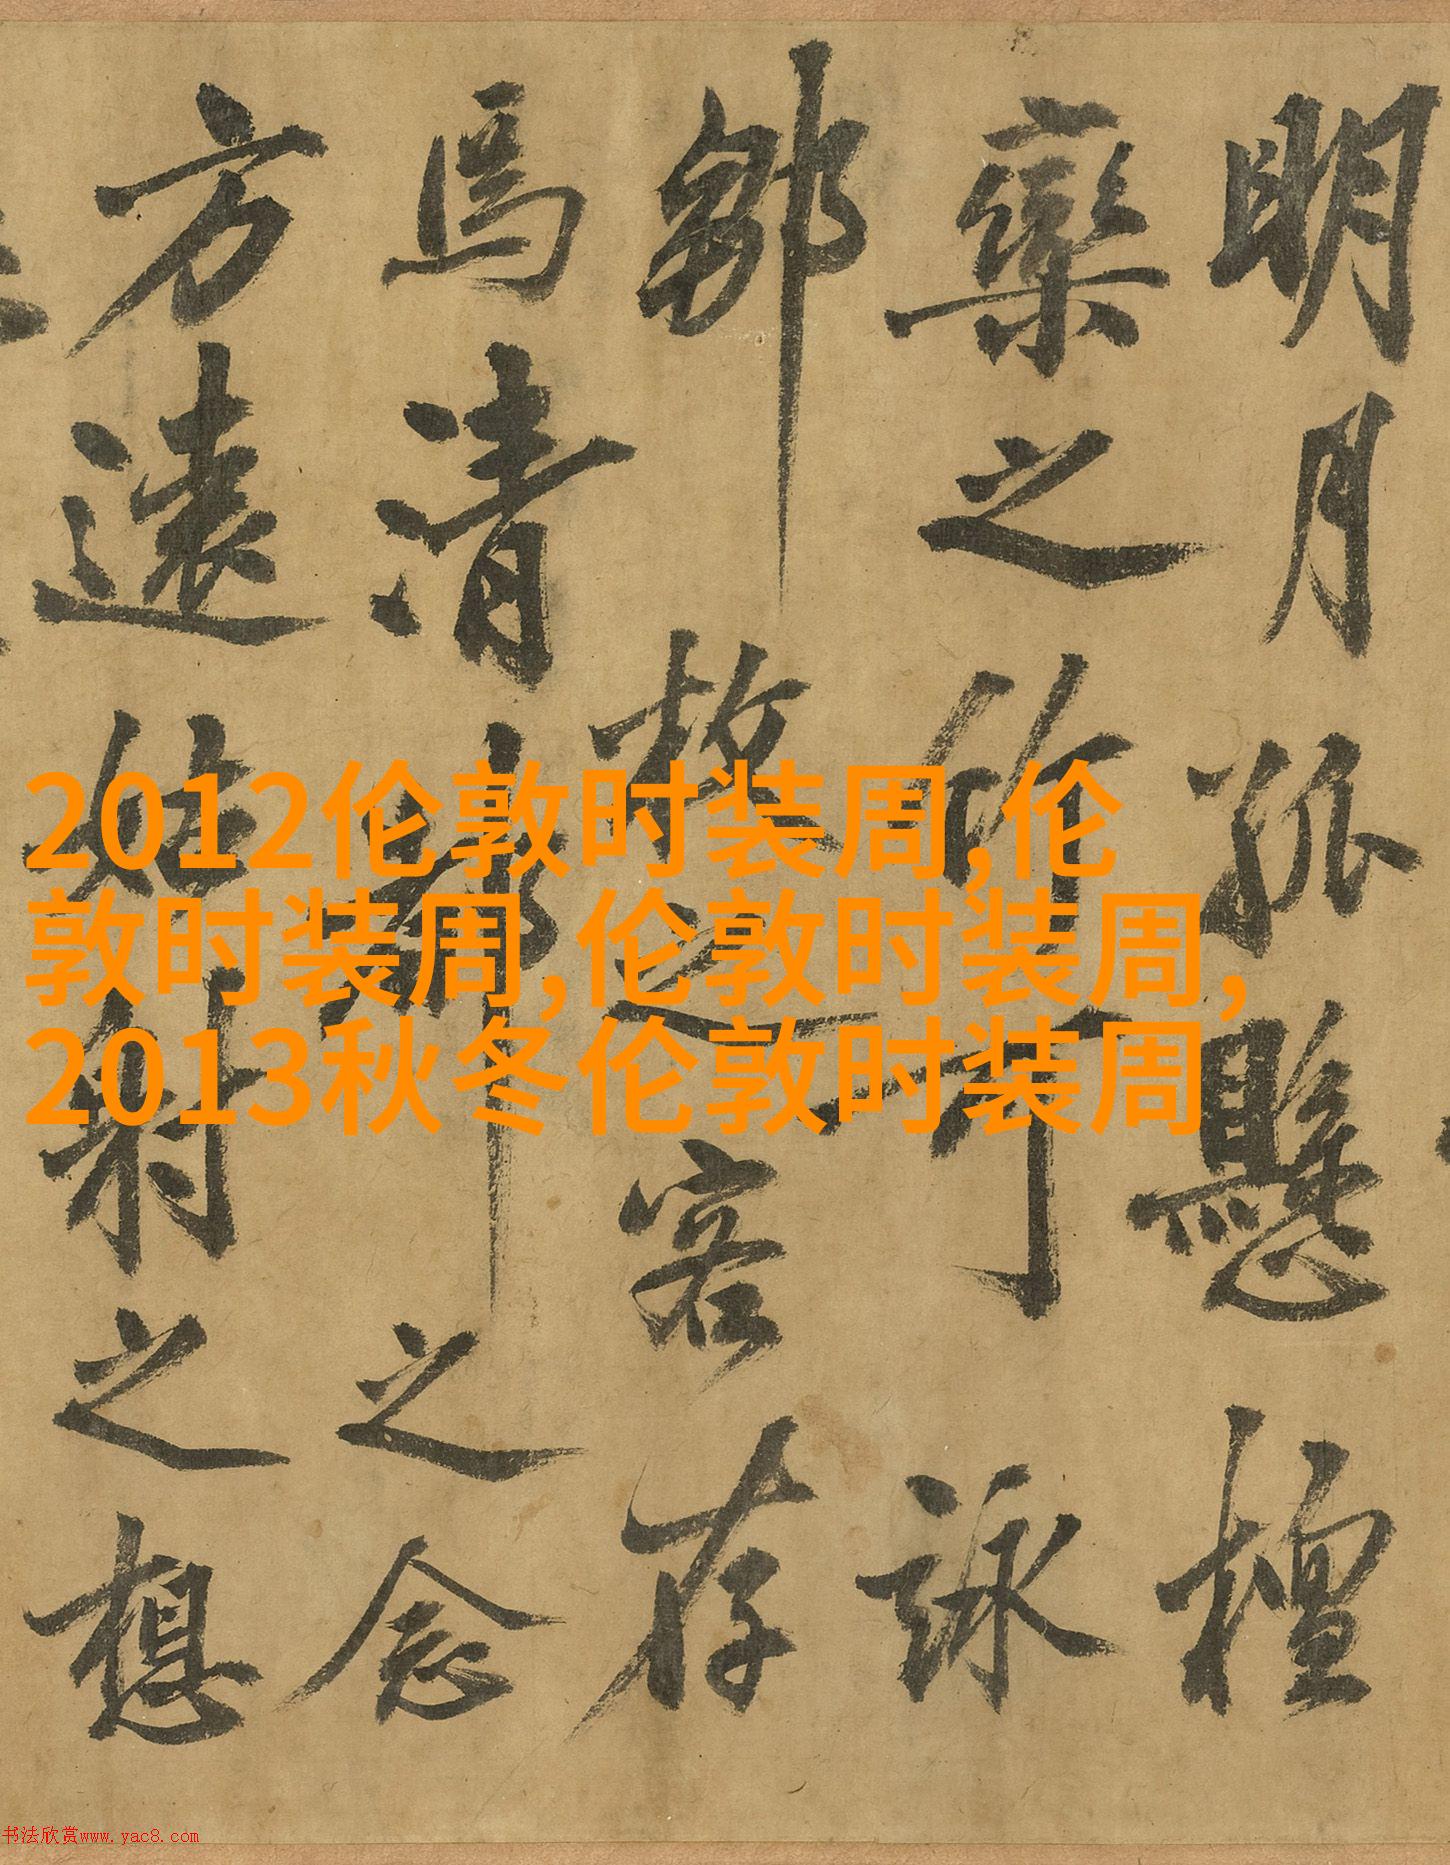 明月孤懸檀
欒之竹可詠
鄒枚之客存
焉清之念
方遠姑射之想
2012伦敦时装周,伦
敦时装周,伦敦时装周,
2013秋冬伦敦时装周
书法欣赏www.yac8.com